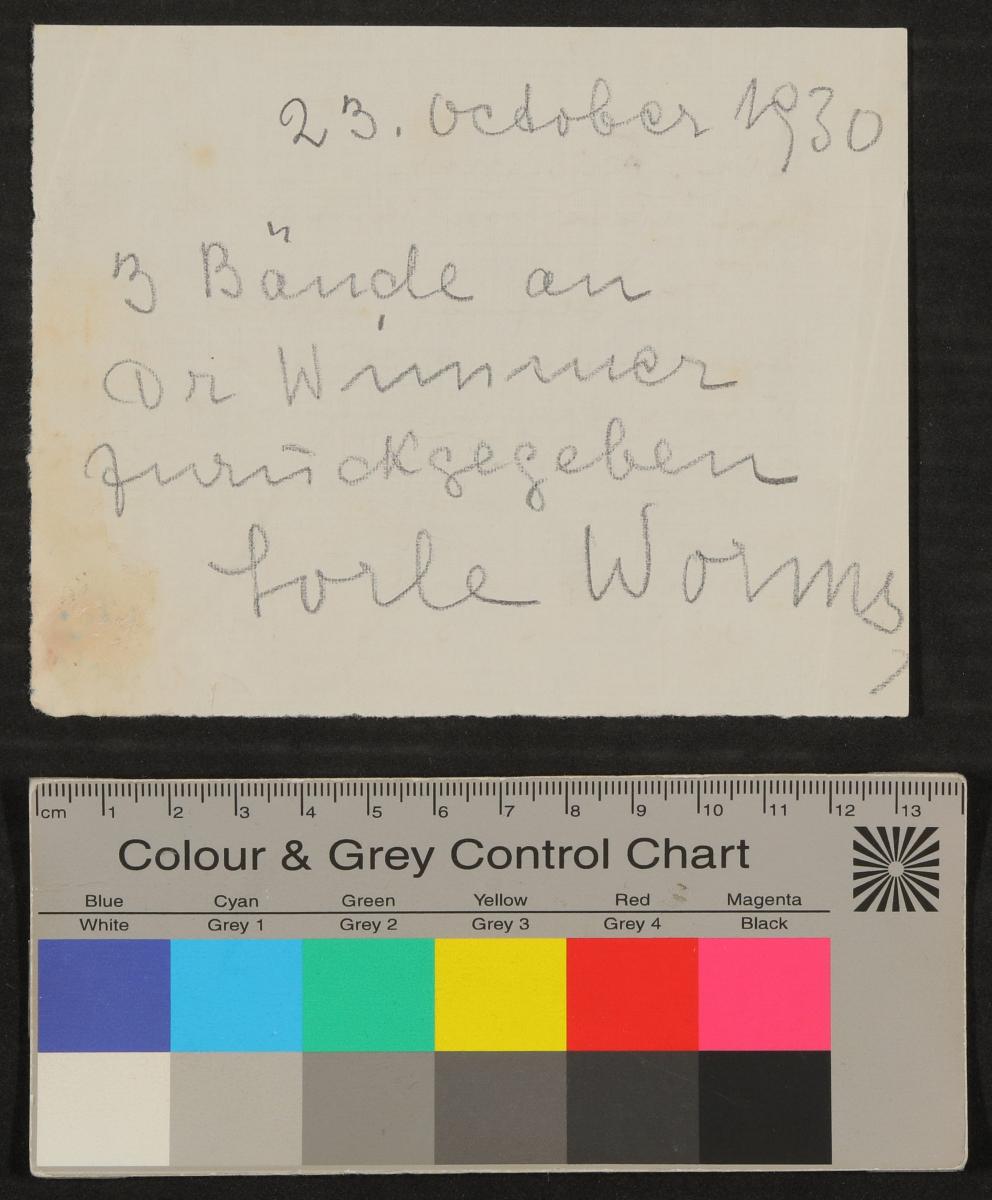 23. October 1930
3 Bände an
Dr Wimmer
zurückgegeben
Lorle Worms
cm 1 2 3 4 5 6 7 8 9 10 11 12 13
Colour & Grey Control Chart
Blue Cyan Green Yellow Red Magenta
White Grey 1 Grey 2 Grey 3 Grey 4 Black